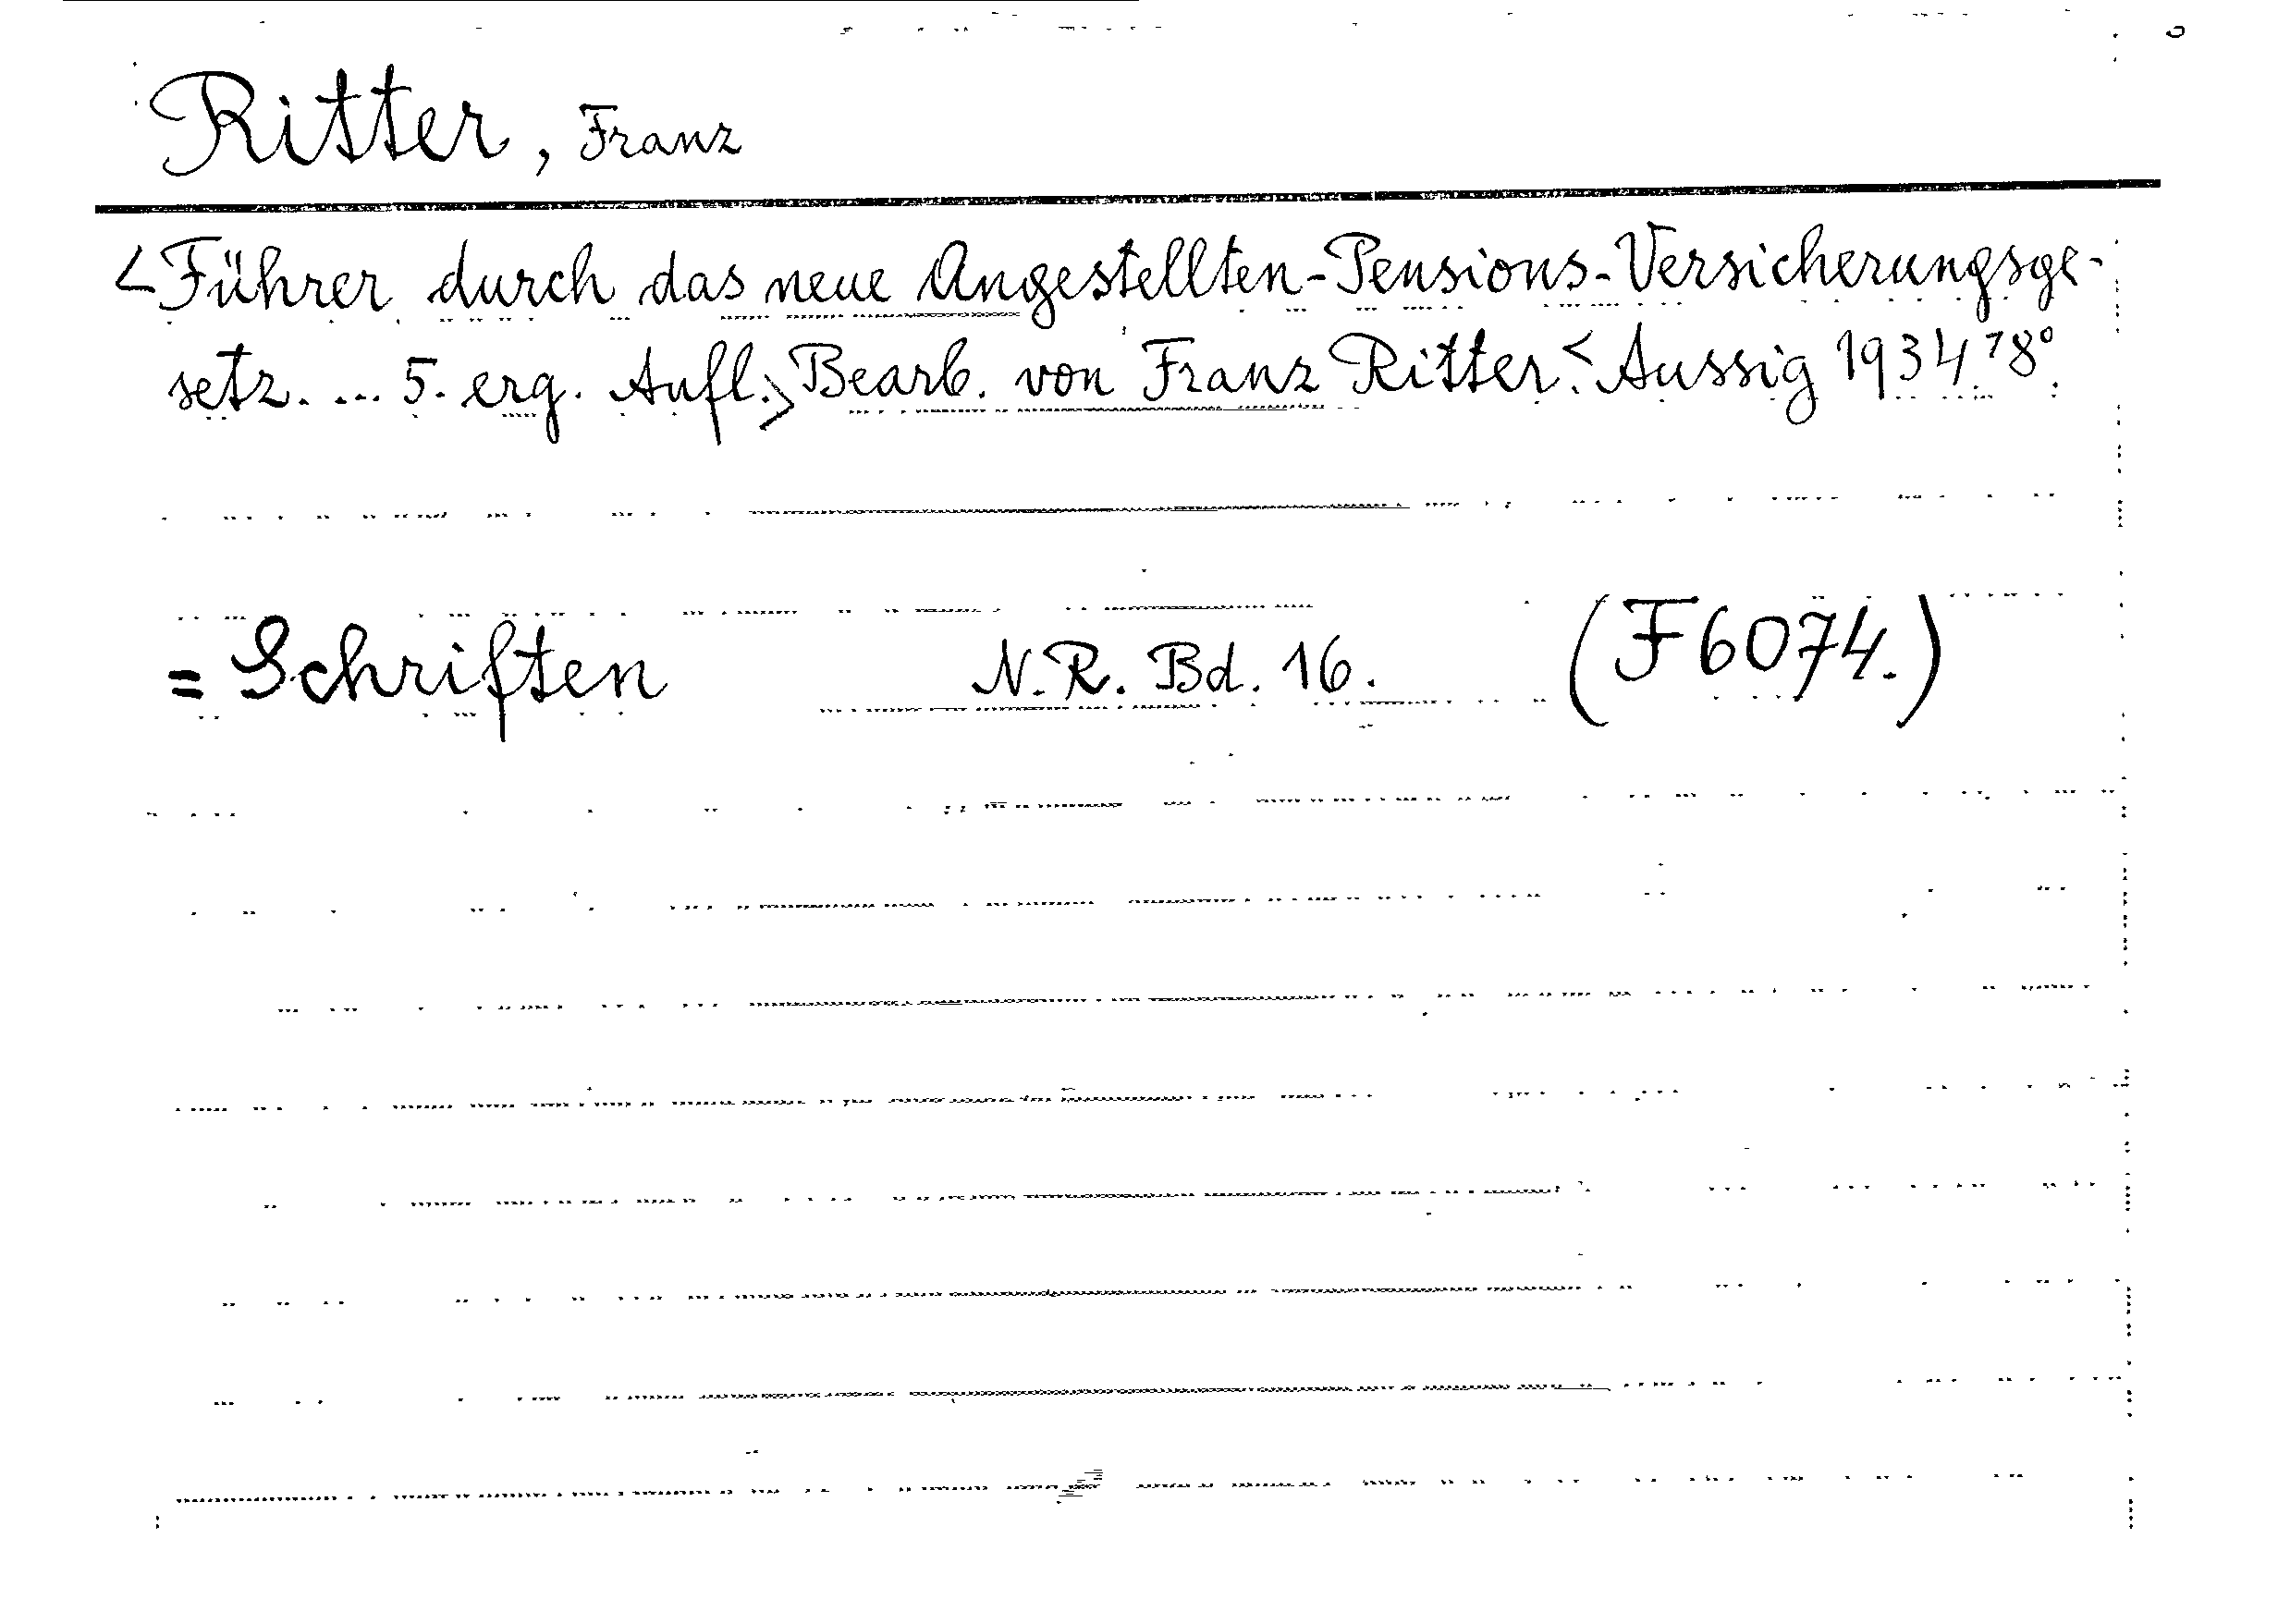 Ritter, Franz
<Führer durch das neue Angestellten-Pensions-Versicherungsge-
setz. ... 5. erg. Aufl.> Bearb. von Franz Ritter. < Aussig 1934.> 8°.
= Schriften N. R. Bd. 16. (F 6074.)